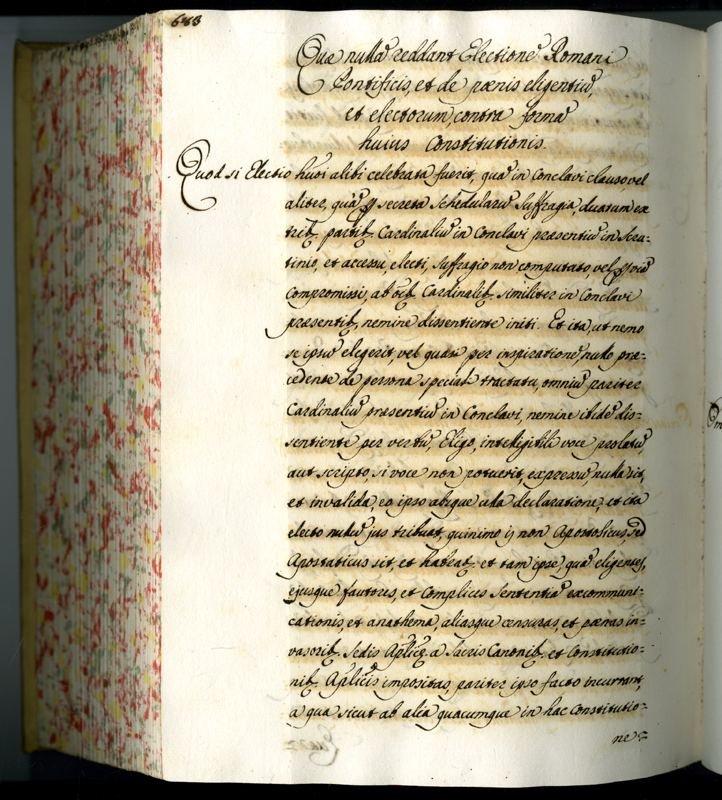 688
Quæ nullã reddant Electionẽ Romani
Pontificis, et de pænis eligentiũ,
et electorum, contra formã
huius Constitutionis.
Quod si Electio huiõi alibi celebrata fuerit, quã in Conclavi clauso vel
aliter, quã ꝑ secreta schedularũ suffragia, duarum ex
tribꝫ partibꝫ Cardinaliũ in Conclavi præsentiũ in scru=
tinio, et accessu, electi, suffragio non computato, vel ꝑ viã
compromissi, ab oĩbꝫ Cardinalibꝫ similiter in Conclavi
præsentibꝫ nemine dissentiente initi. Et ita, ut nemo
se ipsũ elegerit, vel quasi per inspirationẽ, nullo præ=
cedente de persona speciali tractatu, omniũ pariter
Cardinaliũ præsentiũ in Conclavi, nemine itidẽ dis=
sentiente per verbũ, Eligo, intelligibile voce prolatũ,
aut scripto, si voce non potuerit, expressũ nulla sit,
et invalida, eo ipso absque ulla declaratione, et ita
electo nullũ jus tribuat, quinimo ij non Apostolicus, sed
Apostaticus sit, et habeatꝫ et tam ipse, quã eligentes,
ejusque fautores, et complices sententiã excommuni=
cationis, et anathema, aliasque censuras, et pænas in=
vasoribꝫ Sedis Aplicæ, a Sacris Canonibꝫ et Constitutio=
nibꝫ Aplicis impositas, pariter ipso facto incurrant,
a qua sicut ab alia quacumque in hac Constitutio=
ne =